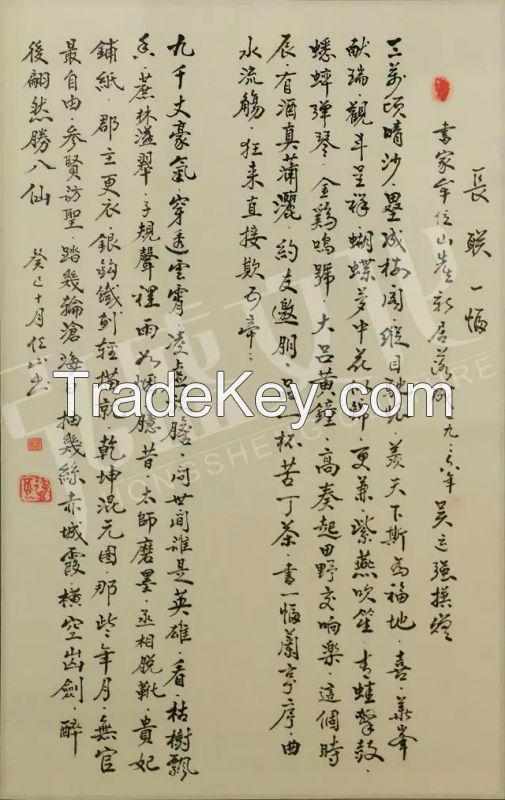 長联一幅
書家牟位山先生新居落成一九 年吴运强撰
三万顷晴沙壘成楼阁縱目 羨天下斯為福地喜華峯
献瑞觀斗呈祥蝴蝶夢中花 更兼紫燕吹笙青蛙擊鼓
蟋蟀弹琴金鷄鳴號大吕黄鐘高奏起田野交响樂這個時
辰有酒真蒲灑約友邀朋品一杯苦丁茶書一幅蘭亭序曲
水流觴狂来直接欺
九千丈豪氣穿透雲霄凌虚 膽問世間誰是英雄看枯樹飘
香蔗林溢翠子規聲裡雨如 臆昔太師磨墨丞相脱靴貴妃
鋪紙郡主更衣銀鈎鐵劃轻描就乾坤混元图那些年月無官
最自由参賢訪聖踏幾輪滄海 抽幾絲赤城霞横空出劍醉
後翩然勝八仙
癸巳十月位山书
TradeKey.com
HONGSHENG